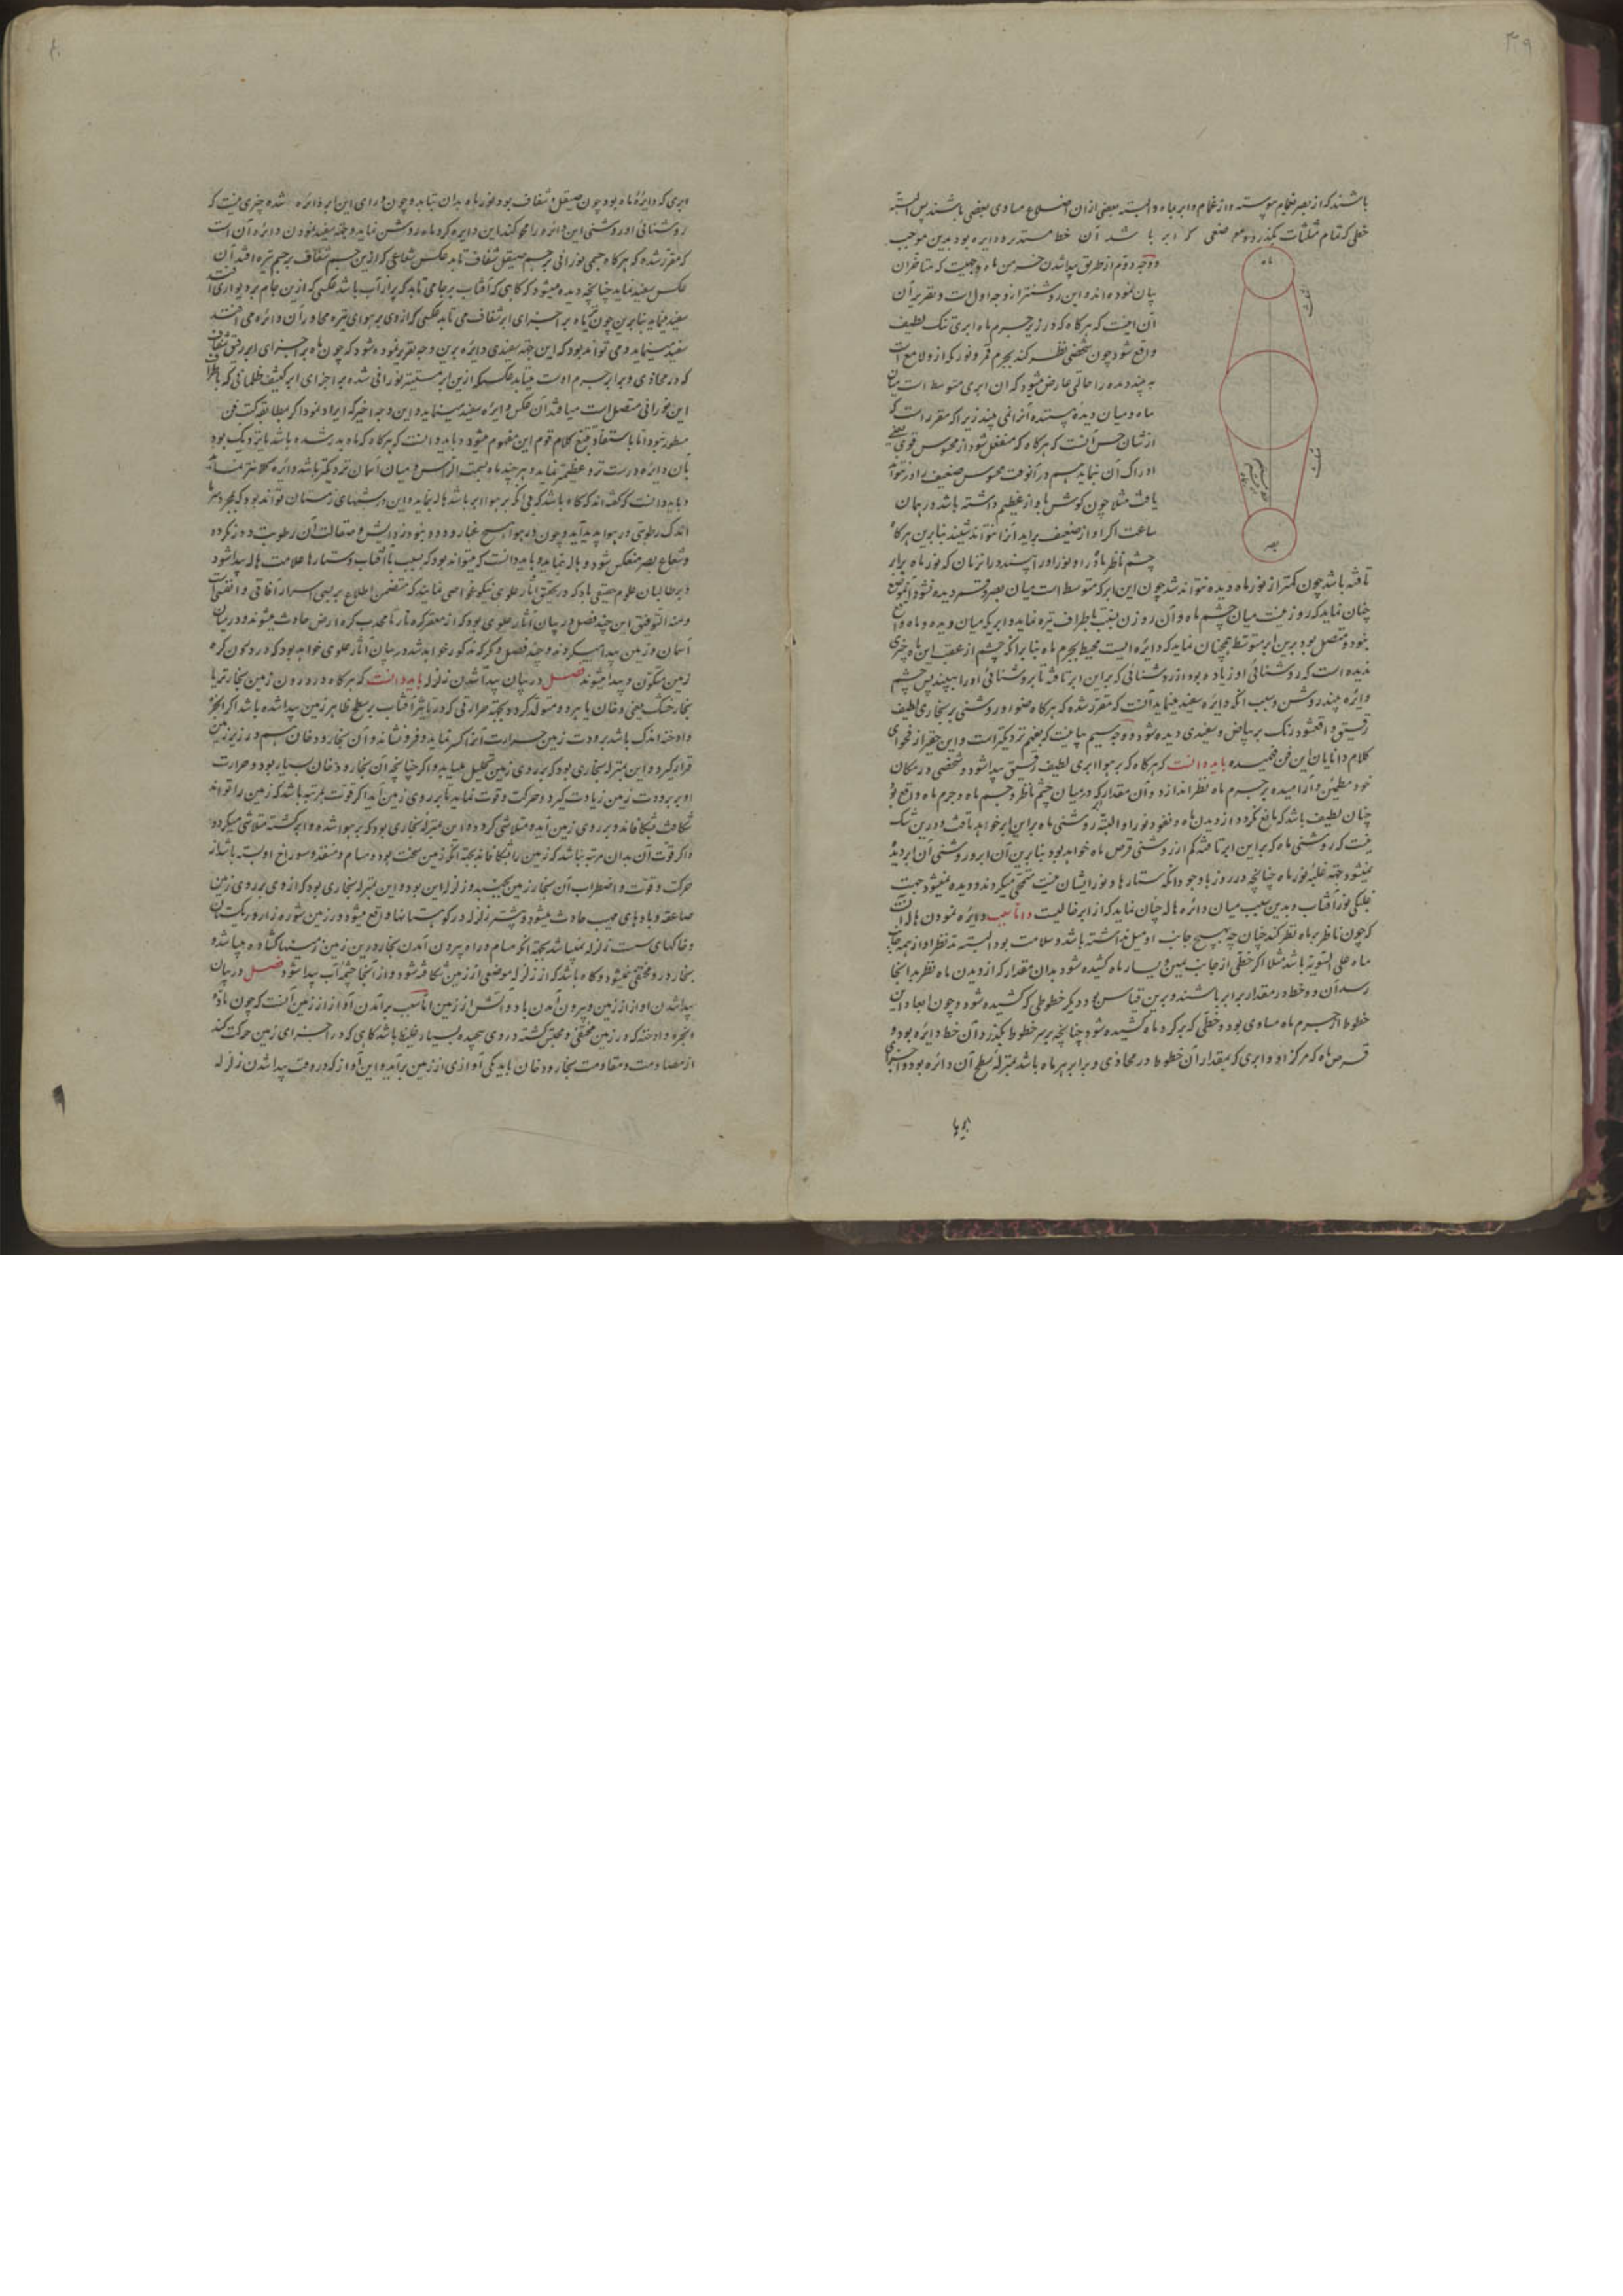 ۳۹
باشند که از بصر بغمام پیوسته و از غمام و ابر بماه و البته بعضی از ان اضلاع مساوی بعضی باشند پس البته
خطی که بتمام مثلثات بگذرد و موضعی که ابر با شد آن خط مستدیر و دایره بود بدین موجب
وجه دوم از طریق پیدا شدن خرمن ماه وجهیست که متاخران
بیان نموده اند و این روشنتر از وجه اول است و تقریر آن
آن اینست که هر کاه که در زیر جرم ماه ابری تنک لطیف
واقع شود چون شخصی نظر کند بجرم قمر و نور که از و لامع است
ماه
بصر
ماه و میان دیده بیننده آنرا نمی بیند زیرا که مقرر است که
از شان حس آنست که هر کاه که منفعل شود از محسوس قوی
ادراک آن نماید هم در آنوقت محسوس ضعیف را در نتواند
یافت مثلا چون کوش آواز عظیم داشته باشد در همان
ساعت اکر آواز ضعیف براید آنرا نتواند شنید بنابرین هر کاه
چشم ناظر ماه را و نور او را بیند در انزمان که نور ماه برابر
تافته باشد چون کمتر از نور ماه دیده نتواند شد چون این ابر که متوسط است میان بصر و قمر دیده نشود
چنان نماید که روزنیست میان چشم و ماه و آن روزن بنسبت باطراف تیره نماید و ابریکه میان دیده و ماه واقع
نبود و متصل بود برین ابر متوسط همچنان نماید که دائره ایست محیط بجرم ماه بنابر آنکه چشم از عقب این ماه چیزی
ندیده است که روشنائی او زیاده بود از روشنائی که براین ابر تافته تا بروشنائی او را نبیند پس چشم
دایره بیند روشن و سبب انکه دایره سفید مینماید آنست که مقرر شده که هر کاه ضوء و روشنی بر بخاری لطیف
رقیق واقع شود رنک بر بیاض و سفیدی دیده شود و وجه سیم بیانیست که بفهم نزدیکتر است و این حقیر از فحوای
کلام دانایان این فن فهمیده باید دانست که هر کاه که بر هوا ابری لطیف رقیق پیدا شود و شخصی در مکان
خود مطمئن و آرامیده بر جرم ماه نظر اندازد و آن مقدار که در میان چشم ناظر و جسم ماه و جرم ماه واقع بود
چنان لطیف باشد که مانع نکردد از دیدن ماه و نفوذ نور او البته روشنی ماه براین ابر خواهد تافت و درین شک
نیست که روشنی ماه که براین ابر تافته کم از روشنی قرص ماه خواهد بود بنابرین آن ابر و روشنی آن ابر دیده
نمیشود بجهة غلبه نور ماه چنانچه در روز با وجود انکه ستارها و نور ایشان نیست متمحق میکردند و دیده نمیشود جهت
غلبکی نور آفتاب و بدین سبب میان دائره هاله چنان نماید که از ابر خالیست و اما سبب دایره نمودن هاله انست
که چون ناظر بر ماه نظر کند چنان چه بهیچ جانب او میل نداشته باشد و سلامت بود البته مد نظر او از همه جانب
ماه علی السویه باشد مثلا اکر خطی از جانب یمین و یسار ماه کشیده شود بدان مقدار که از دیدن ماه نظر بدانجا
رسد آن دو خط در مقدار برابر باشند و برین قیاس بود دیکر خطوطی که کشیده شود و چون ابعاد این
خطوط از جرم ماه مساوی بود و خطی که بر کرد ماه کشیده شود چنانچه بر سر خطوط بگذرد آن خط دایره بود و
قرص ماه که مرکز او و ابری که بمقدار آن خطوط در محاذی و برابر بر ماه باشد بمنزله سطح آن دائره بود و اجزای
ابری که دایرۀ ماه بود چون صیقل و شفاف بود نور ماه بدان بتابد و چون ورای این ابر دائره شده چیزی نیست که
روشنائی او روشنی این دائره را محو کند این دایره کرد ماه روشن نماید و جهة سفید نمودن دایره آن است
که مقرر شده که هر کاه جسمی نورانی بر جسم صیقل شفاف تابد عکس شعاعی که ازین جسم شفاف بر جسم تیره افتد آن
عکس سفید نماید چنانچه دیده میشود که کاهی که آفتاب بر جامی تابد که پر از آب باشد عکسی که ازین جام بر دیواری افتد
سفید مینماید بنابرین چون ماه بر اجزای ابر شفاف می تابد عکسی که از وی بر هوای تیره مجاور آن دائره می افتد
سفید مینماید و می تواند بود که این جهة سفیدی دایره برین وجه تقریر نموده شود که چون ماه بر اجزای ابر رقیق شفاف
که در محاذی و برابر جرم اوست میتابد عکسی که ازین ابر مستنیر نورانی شده بر اجزای ابر کثیف ظلمانی که باطراف
این نورانی متصل است میافتد آن عکس دایره سفید مینماید و این وجه اخیر که ایراد نمود اکر مطابقه کتب فن
مسطور نبود اما باستفاد تتبع کلام قوم این مفهوم میشود و باید دانست که هر کاه که ماه بدر شده باشد یا نزدیک بود
بآن دایره درست تر و عظیمتر نماید و هر چند ماه بسمت الراس و میان آسمان نزدیکتر باشد دائره کلانتر نماید
و باید دانست که کفته اند که کاه باشد که بی آنکه بر هوا ابر باشد هاله نماید و این در شبهای زمستان تواند بود که بمجرد سرما
اندک رطوبتی در هوا پدید آید و چون در هوا هیچ غبار و دود نبود
و شعاع بصر منعکس شود و هاله نماید و باید دانست که میتواند بود که بسبب با آفتاب و ستارها علامت هاله پیدا شود
و بر طالبان علوم حقیقی باد که در تحقیق آثار علوی نیکو خواصی نمایند که متضمن اطلاع بر بسی اسرار آفاقی و انفسی است
و منه التوفیق این چند فصل در بیان آثار علوی بود که از مقعر کره نار تا محدب کره ارض حادث میشوند و در میان
آسمان و زمین پیدا میکردند و چند فصل دیکر که مذکور خواهد شد در بیان آثار علوی خواهد بود که در درون کره
زمین متکون و پیدا میشوند فصل در بیان پیدا شدن زلزله باید دانست که هر کاه در درون زمین بخار تر یا
بخار خشک یعنی دخان یا هر دو متولد کردد بجهة حرارتی که در تاثیر آفتاب بر سطح ظاهر زمین پیدا شده باشد اکر ابخره
و ادخنه اندک باشد برودت زمین حرارت آنرا کسر نماید و فرو نشاند و آن بخار و دخان هم در زیر زمین
قرار کیرد و این بمنزله بخاری بود که بر روی زمین تحلیل میباید و اکر چنانچه آن بخار و دخان بسیار بود و حرارت
او بر برودت زمین زیادت کیرد و حرکت و قوت نماید تا بر روی زمین آید اکر قوت بمرتبه باشد که زمین را تواند
شکافت بشکافاند و بر روی زمین آید و متلاشی کردد و این بمنزله بخاری بود که بر هوا شده و ابر کشته متلاشی میکردد
و اکر قوت آن بدان مرتبه نباشد که زمین را شکافاند بجهة آنکه زمین سخت بود و مسام و منفذ و سوراخ او بسته باشد از
حرکت و قوت و اضطراب آن بخار زمین بجنبد و زلزله این بود و این بمنزله بخاری بود که از وی بر روی زمین
صاعقه و بادهای مهیب حادث میشود و بیشتر زلزله در کوهستانها واقع میشود و در زمین شوره زار و ریکستان
و خاکهای سست زلزله نمیباشد بجهة آنکه مسام و راه بیرون آمدن بخار درین زمین زمینها کشاده میباشد و
بخار در و محتقن نمیشود و کاه باشد که از زلزله موضعی از زمین شکافته شود و از آنجا چشمه آب پیدا شود فصل در بیان
پیدا شدن اواز از زمین و بیرون آمدن باد و آتش از زمین اما سبب برآمدن آواز از زمین آنست که چون ماده
ابخره و ادخنه که در زمین محتقن و محتبس کشته در وی پیچیده بسیار غلیظ باشد کاهی که در اجزای زمین حرکت کند
از مصادمت و مقاومت بخار و دخان باید یکی آوازی از زمین برآید و این آواز که در وقت پیدا شدن زلزله